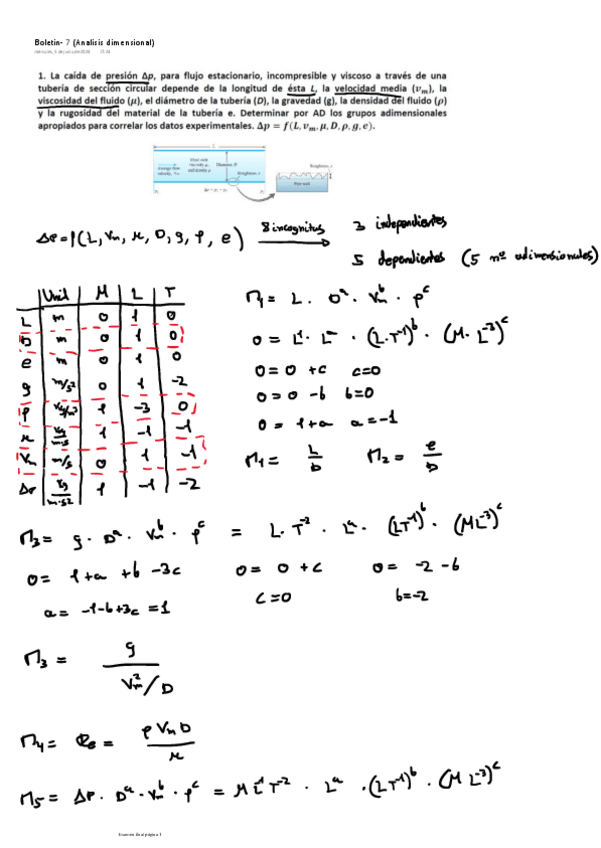 Boletin- 7 (Analisis dimensional)
1. La caída de presión Δp, para flujo estacionario, incompresible y viscoso a través de una
tubería de sección circular depende de la longitud de ésta L, la velocidad media (vₘ), la
viscosidad del fluido (μ), el diámetro de la tubería (D), la gravedad (g), la densidad del fluido (ρ)
y la rugosidad del material de la tubería e. Determinar por AD los grupos adimensionales
apropiados para correlar los datos experimentales. Δp = f(L, vₘ, μ, D, ρ, g, e).
Δp = f(L, Vm, μ, D, g, ρ, e) 8 incognitas 3 independientes
5 dependientes (5 nº adimensionales)
Unid M L T
L m 0 1 0
D m 0 1 0
e m 0 1 0
g m/s² 0 1 -2
ρ kg/m³ 1 -3 0
μ kg/m·s 1 -1 -1
Vm m/s 0 1 -1
Δp kg/m·s² 1 -1 -2
Π₁ = L · Dᵃ · Vmᵇ · ρᶜ
0 = L¹ · Lᵃ · (L·T⁻¹)ᵇ · (M·L⁻³)ᶜ
0 = 0 + c c=0
0 = 0 - b b=0
0 = 1+a a=-1
Π₁ = L/D Π₂ = e/D
Π₃ = g · Dᵃ · Vmᵇ · ρᶜ = L·T⁻² · Lᵃ · (LT⁻¹)ᵇ · (ML⁻³)ᶜ
0 = 1+a +b -3c 0 = 0 +c 0 = -2 -b
a = -1-b+3c = 1 c=0 b=-2
Π₃ = g / Vm²/D
Π₄ = Re = ρ Vm D / μ
Π₅ = Δp · Dᵃ · Vmᵇ · ρᶜ = M L⁻¹ T⁻² · Lᵃ · (LT⁻¹)ᵇ · (M L⁻³)ᶜ
Examen final página 1